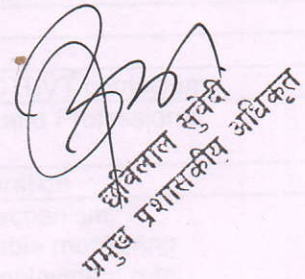 छविलाल सुवेदी
प्रमुख प्रशासकीय अधिकृत